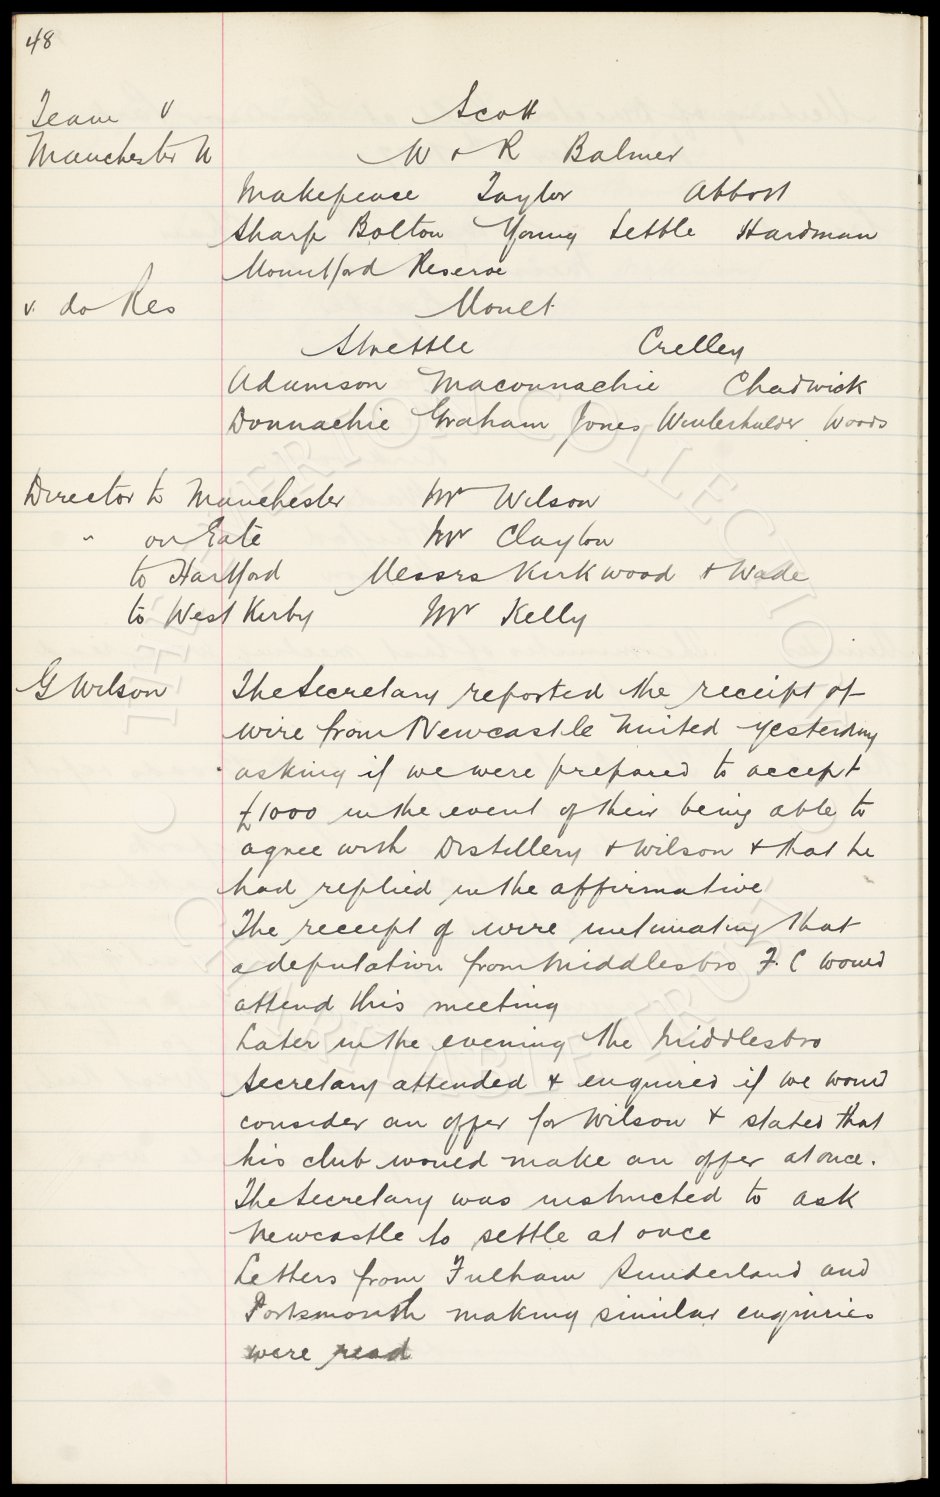 48
Team v Scott
Manchester U W & R Balmer
Makepeace Taylor Abbott
Sharp Bolton Young Settle Hardman
Mountford Reserve
v. do Res Mouet
Strettle Crelley
Adamson Maconnachie Chadwick
Donnachie Graham Jones Winterhalder Woods
Director to Manchester Mr Wilson
" on Gate Mr Clayton
to Hartford Messrs Kirkwood & Wade
to West Kirby Mr Kelly
G Wilson The Secretary reported the receipt of
wire from Newcastle United yesterday
asking if we were prepared to accept
£1000 in the event of their being able to
agree with Distillery & Wilson & that he
had replied in the affirmative
The receipt of wire intimating that
a deputation from Middlesbro F.C would
attend this meeting
Later in the evening the Middlesbro
Secretary attended & enquired if we would
consider an offer for Wilson & stated that
his club would make an offer at once.
The Secretary was instructed to ask
Newcastle to settle at once
Letters from Fulham Sunderland and
Portsmouth making similar enquiries
were read
THE EVERTON COLLECTION
CHARITABLE TRUST